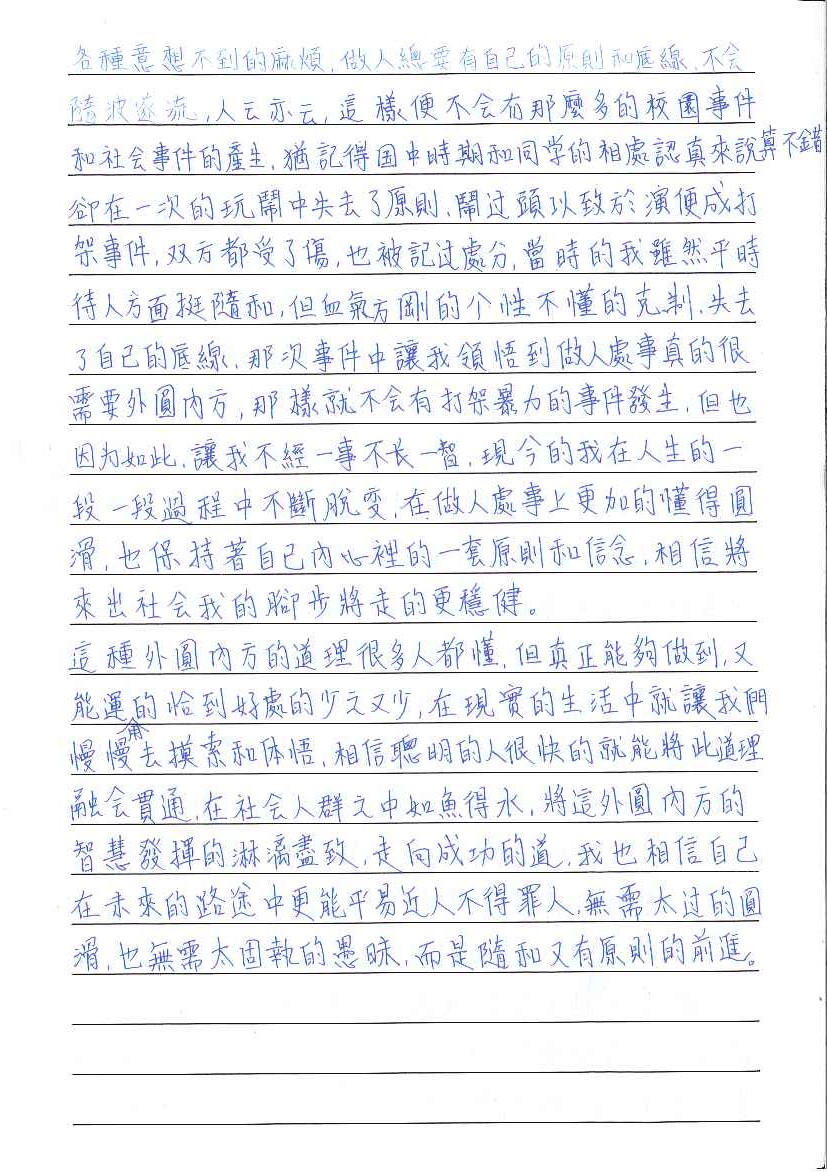 各種意想不到的麻煩,做人總要有自己的原則和底線,不会
隨波逐流,人云亦云,這樣便不会有那麼多的校園事件
和社会事件的產生,猶記得国中時期和同学的相處認真來說算不錯
卻在一次的玩鬧中失去了原則,鬧过頭以致於演便成打
架事件,双方都受了傷,也被記过處分,當時的我雖然平時
待人方面挺隨和,但血氣方剛的个性不懂的克制,失去
了自己的底線,那次事件中讓我領悟到做人處事真的很
需要外圓內方,那樣就不会有打架暴力的事件發生,但也
因为如此,讓我不經一事不长一智,現今的我在人生的一
段一段過程中不斷脫变,在做人處事上更加的懂得圓
滑,也保持著自己內心裡的一套原則和信念,相信將
來出社会我的腳步將走的更穩健。
這種外圓內方的道理很多人都懂,但真正能夠做到,又
能運用的恰到好處的少之又少,在現實的生活中就讓我們
慢慢去摸索和体悟,相信聰明的人很快的就能將此道理
融会貫通,在社会人群之中如魚得水,將這外圓內方的
智慧發揮的淋漓盡致,走向成功的道,我也相信自己
在未來的路途中更能平易近人不得罪人,無需太过的圓
滑,也無需太固執的愚昧,而是隨和又有原則的前進。